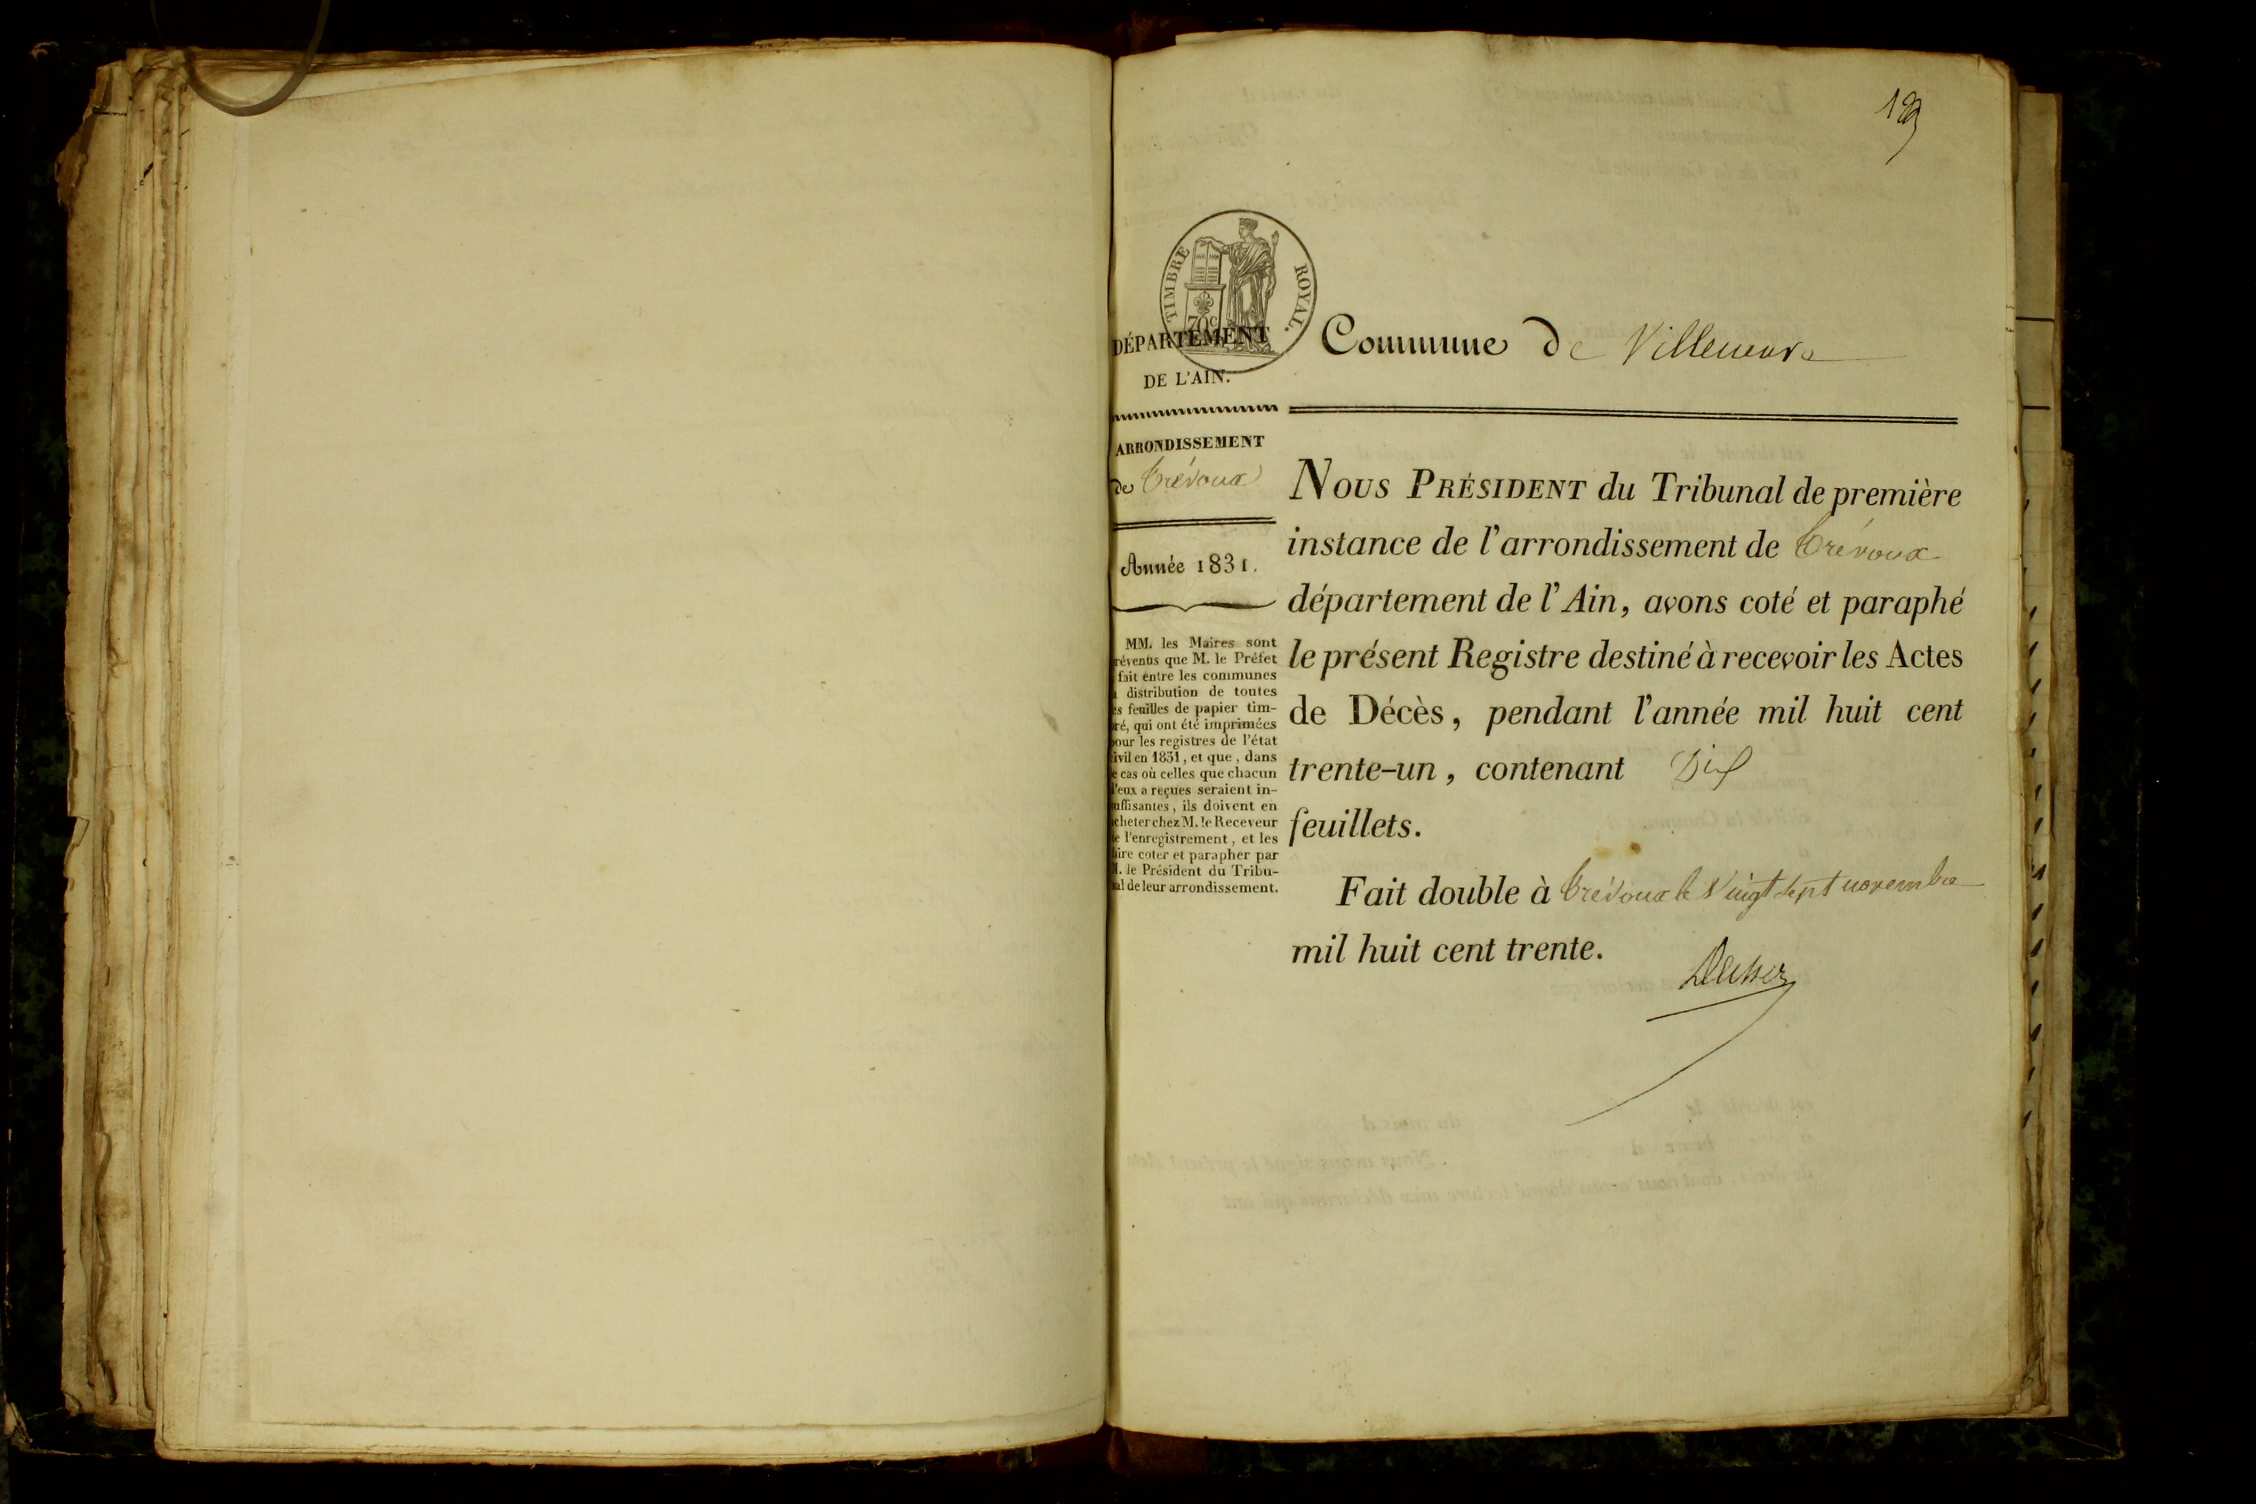 TIMBRE ROYAL.
70c
DÉPARTEMENT
DE L'AIN.
Commune de Villeneuve
ARRONDISSEMENT
de Trévoux
Année 1831.
MM. les Maires sont
réventis que M. le Préfet
fait entre les communes
distribution de toutes
s feuilles de papier tim-
ré, qui ont été imprimées
our les registres de l'état
ivil en 1831, et que, dans
e cas où celles que chacun
'eux a reçues seraient in-
uffisantes, ils doivent en
cheter chez M. le Receveur
e l'enregistrement, et les
aire coter et parapher par
M. le Président du Tribu-
nal de leur arrondissement.
NOUS PRÉSIDENT du Tribunal de première
instance de l'arrondissement de Trévoux
département de l'Ain, avons coté et paraphé
le présent Registre destiné à recevoir les Actes
de Décès, pendant l'année mil huit cent
trente-un, contenant Dix
feuillets.
Fait double à Trévoux le Vingt sept novembre
mil huit cent trente.